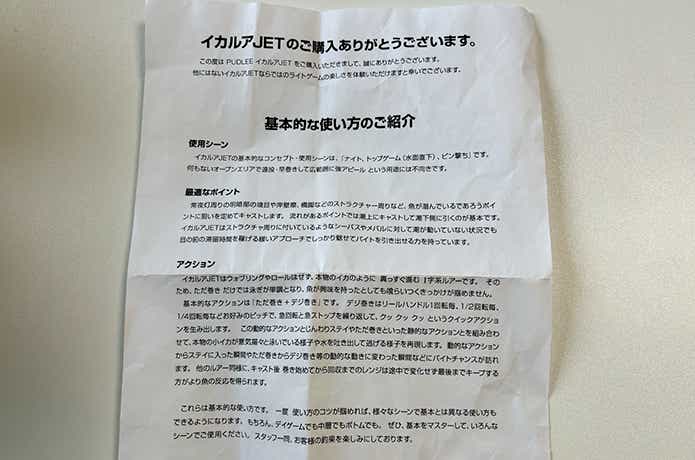 イカルアJETのご購入ありがとうございます。
この度は PUDLEE イカルアJET をご購入いただきまして、誠にありがとうございます。
他にはないイカルアJETならではのライトゲームの楽しさを体験いただけますと幸いでございます。
基本的な使い方のご紹介
使用シーン
イカルアJETの基本的なコンセプト・使用シーンは、「ナイト、トップゲーム(水面直下)、ピン撃ち」です。
何もないオープンエリアで遠投・早巻きして広範囲に強アピール という用途には不向きです。
最適なポイント
常夜灯周りの明暗部の境目や岸壁際、橋脚などのストラクチャー周りなど、魚が潜んでいるであろうポイ
ントに狙いを定めてキャストします。 流れがあるポイントでは潮上にキャストして潮下側に引くのが基本です。
イカルアJETはストラクチャ周りに付いているようなシーバスやメバルに対して潮が動いていない状況でも
目の前の滞留時間を稼げる緩いアプローチでしっかり魅せてバイトを引き出せる力を持っています。
アクション
イカルアJETはウォブリングやロールはせず、本物のイカのように 真っすぐ進む I字系ルアーです。 その
ため、ただ巻き だけでは泳ぎが単調となり、魚が興味を持ったとしても喰らいつくきっかけが掴めません。
基本的なアクションは「ただ巻き+デジ巻き」です。 デジ巻きはリールハンドル1回転毎、1/2回転毎、
1/4回転毎などお好みのピッチで、急回転と急ストップを繰り返して、クッ クッ クッ というクイックアクショ
ンを生み出します。 この動的なアクションとじんわりステイやただ巻きといった静的なアクションとを組み合わ
せて、本物の小イカが意気揚々と泳いでいる様子や水を吐き出して逃げる様子を再現します。 動的なアクション
からステイに入った瞬間やただ巻きからデジ巻き等の動的な動きに変わった瞬間などにバイトチャンスが訪れ
ます。 他のルアー同様に、キャスト後 巻き始めてから回収までのレンジは途中で変化せず最後までキープする
方がより魚の反応を得られます。
これらは基本的な使い方です。 一度 使い方のコツが掴めれば、様々なシーンで基本とは異なる使い方も
できるようになります。もちろん、デイゲームでも中層でもボトムでも。 ぜひ、基本をマスターして、いろんな
シーンでご使用ください。スタッフ一同、お客様の釣果を楽しみにしております。